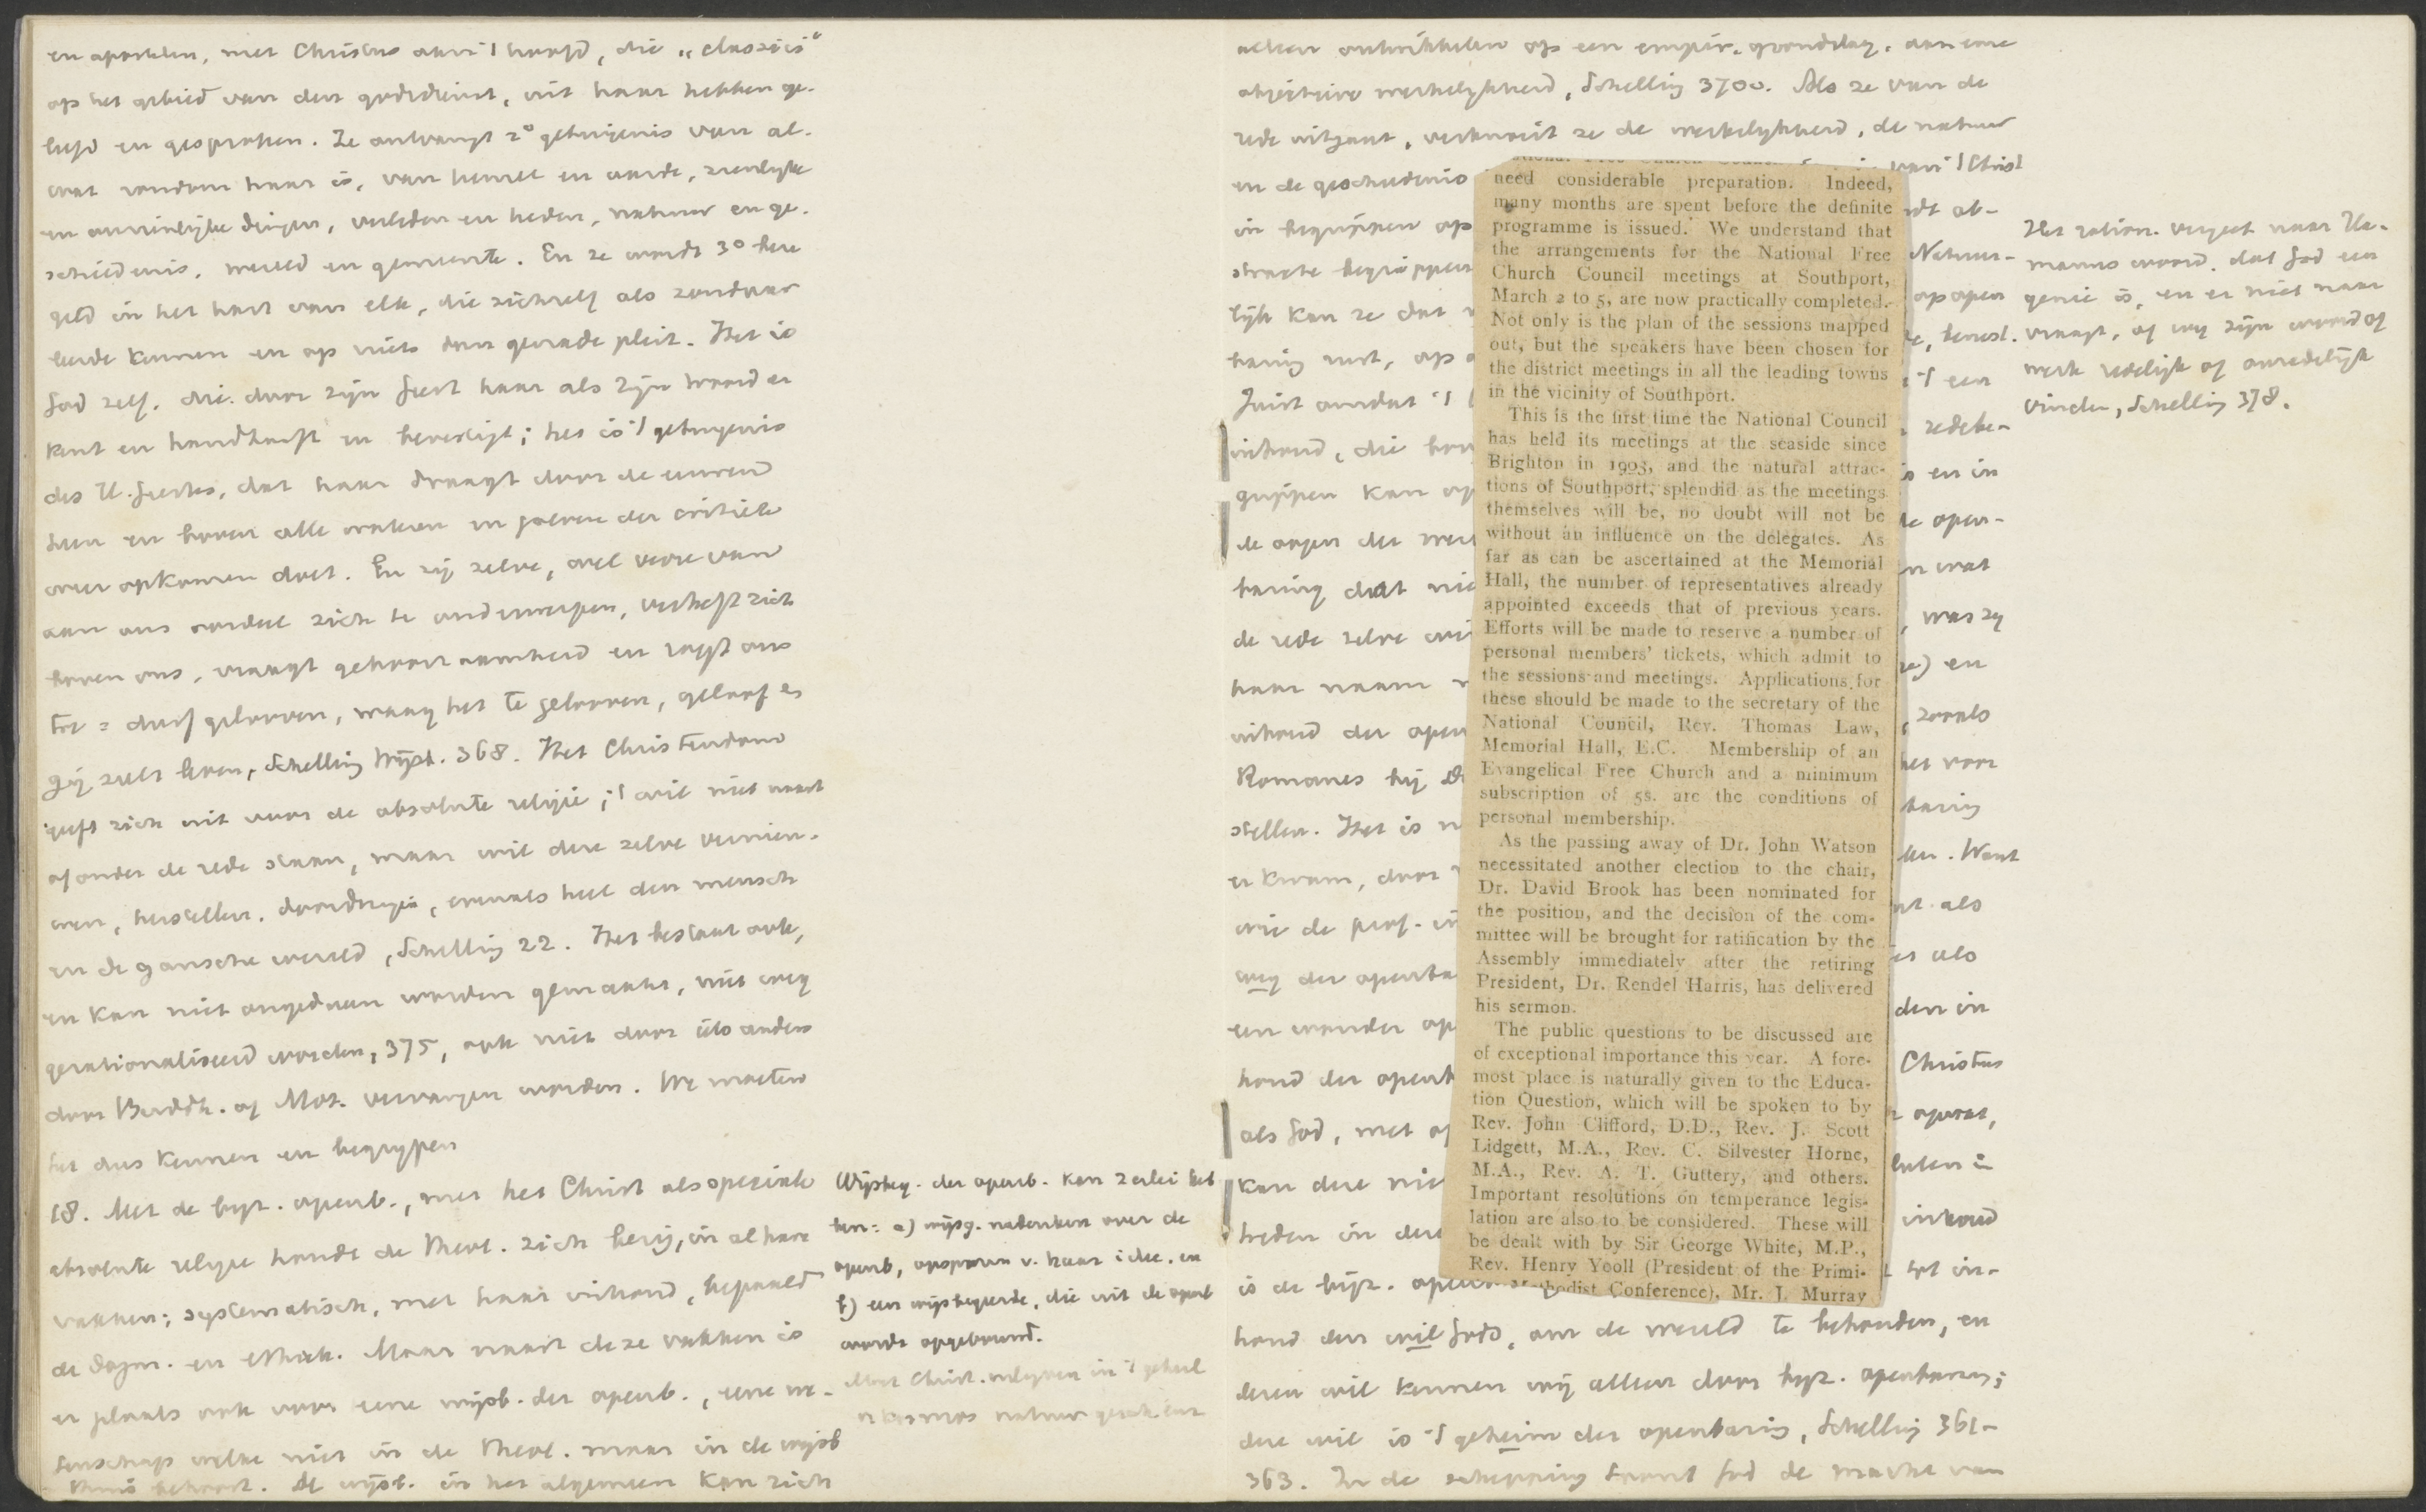 en apostelen, met Christus aan 't hoofd, die "classici"
op het gebied van den godsdienst, uit haar hebben ge-
leefd en gesproken. Ze ontvangt 2° getuigenis van al-
wat rondom haar is, van hemel en aarde, zienlijke
en onzienlijke dingen, verleden en heden, natuur en ge-
schiedenis, wereld en gemeente. En ze wordt 3° beze
geld in het hart van elk, die zichzelf als zondaar
leerde kennen en op niets dan genade pleit. Het is
God zelf, die door zijn Geest haar als zijn woord er
kent en handhaaft en bevestigt; het is 't getuigenis
des H. Geestes, dat haar draagt door de eeuwen
heen en boven alle wateren der critiek
doet. En zij zelve, wel verre van
aan ons oordeel zich te onderwerpen, verheft zich
boven ons, vraagt gehoorzaamheid en roept ons
toe = durf gelooven, waag het te gelooven, geloof en
gij zult leven, Schelling Wijsb. 368. Het Christendom
geeft zich uit voor de absolute religie; 't wil niet naast
of onder de rede staan, maar wil deze zelve vernieu-
wen, herstellen, doordringen, evenals heel den mensch
en de gansche wereld, Schelling 22. Het bestaat ook,
en kan niet ongedaan worden gemaakt, niet weg
gerationaliseerd worden, 375, ook niet door iets anders
door Buddh. of Moh. vervangen worden. We moeten
het dus kennen en begrijpen
18. Met de byz. openb., met het Christ als speciale
absolute religie houdt de Theol. zich bezig, in al hare
vakken; systematisch, met haar inhoud, bepaald
de Dogm. en Ethiek. Maar naast deze vakken is
er plaats ook voor eene wijsb. der openb., eene we-
tenschap welke niet in de Theol. maar in de wijsb
thuis behoort. De wijsb. in het algemeen kan zich
Wijsbeg. der openb. kan 2erlei bet
ken: a) wijsg. nadenken over de
openb, opsporen v. haar idee. en
b) een wijsbegeerte, die uit de openb
wordt opgebouwd.
alleen ontwikkelen op een empir. grondslag, aan eene
objectieve werkelijkheid, Schelling 370v. Als ze van de
rede uitgaat, verknoeit ze de werkelijkheid, de natuur
en de geschiedenis
van 't Christ
in begrippen op
wordt ab-
stracte begrippen
Natuur-
lijk kan ze dat
op open
baring rust, op
Juist omdat 't
't een
inhoud, die
redebe-
grijpen kan
en in
de oogen der
open-
baring dat
wat
de rede zelve
was zij
haar naam
en
inhoud der open
zooals
Romanes bij
het voor
stellen. Het is
baring
er kwam, door
Want
wie de
als
weg der openba
als
een wonder op
den in
houd der openb
Christus
als God, met
kan deze
heden in deze
inhoud
is de bijz.
tot in-
houd den wil Gods, om de wereld te behouden, en
dezen wil kennen wij alleen door byz. openbaring;
deze wil is 't geheim der openbaring, Schelling 361-
363. In de schepping toont God de macht van
Het ration. vergeet naar Ha-
manns woord, dat God een
genie is, en er niet naar
vraagt, of wij zijn woord of
werk redelijk of onredelijk
vinden, Schelling 378.
need considerable preparation. Indeed,
many months are spent before the definite
programme is issued. We understand that
the arrangements for the National Free
Church Council meetings at Southport,
March 2 to 5, are now practically completed.
Not only is the plan of the sessions mapped
out, but the speakers have been chosen for
the district meetings in all the leading towns
in the vicinity of Southport.
This is the first time the National Council
has held its meetings at the seaside since
Brighton in 1903, and the natural attrac-
tions of Southport, splendid as the meetings
themselves will be, no doubt will not be
without an influence on the delegates. As
far as can be ascertained at the Memorial
Hall, the number of representatives already
appointed exceeds that of previous years.
Efforts will be made to reserve a number of
personal members' tickets, which admit to
the sessions and meetings. Applications for
these should be made to the secretary of the
National Council, Rev. Thomas Law,
Memorial Hall, E.C. Membership of an
Evangelical Free Church and a minimum
subscription of 5s. are the conditions of
personal membership.
As the passing away of Dr. John Watson
necessitated another election to the chair,
Dr. David Brook has been nominated for
the position, and the decision of the com-
mittee will be brought for ratification by the
Assembly immediately after the retiring
President, Dr. Rendel Harris, has delivered
his sermon.
The public questions to be discussed are
of exceptional importance this year. A fore-
most place is naturally given to the Educa-
tion Question, which will be spoken to by
Rev. John Clifford, D.D., Rev. J. Scott
Lidgett, M.A., Rev. C. Silvester Horne,
M.A., Rev. A. T. Guttery, and others.
Important resolutions on temperance legis-
lation are also to be considered. These will
be dealt with by Sir George White, M.P.,
Rev. Henry Yooll (President of the Primi-
Conference), Mr. J. Murray